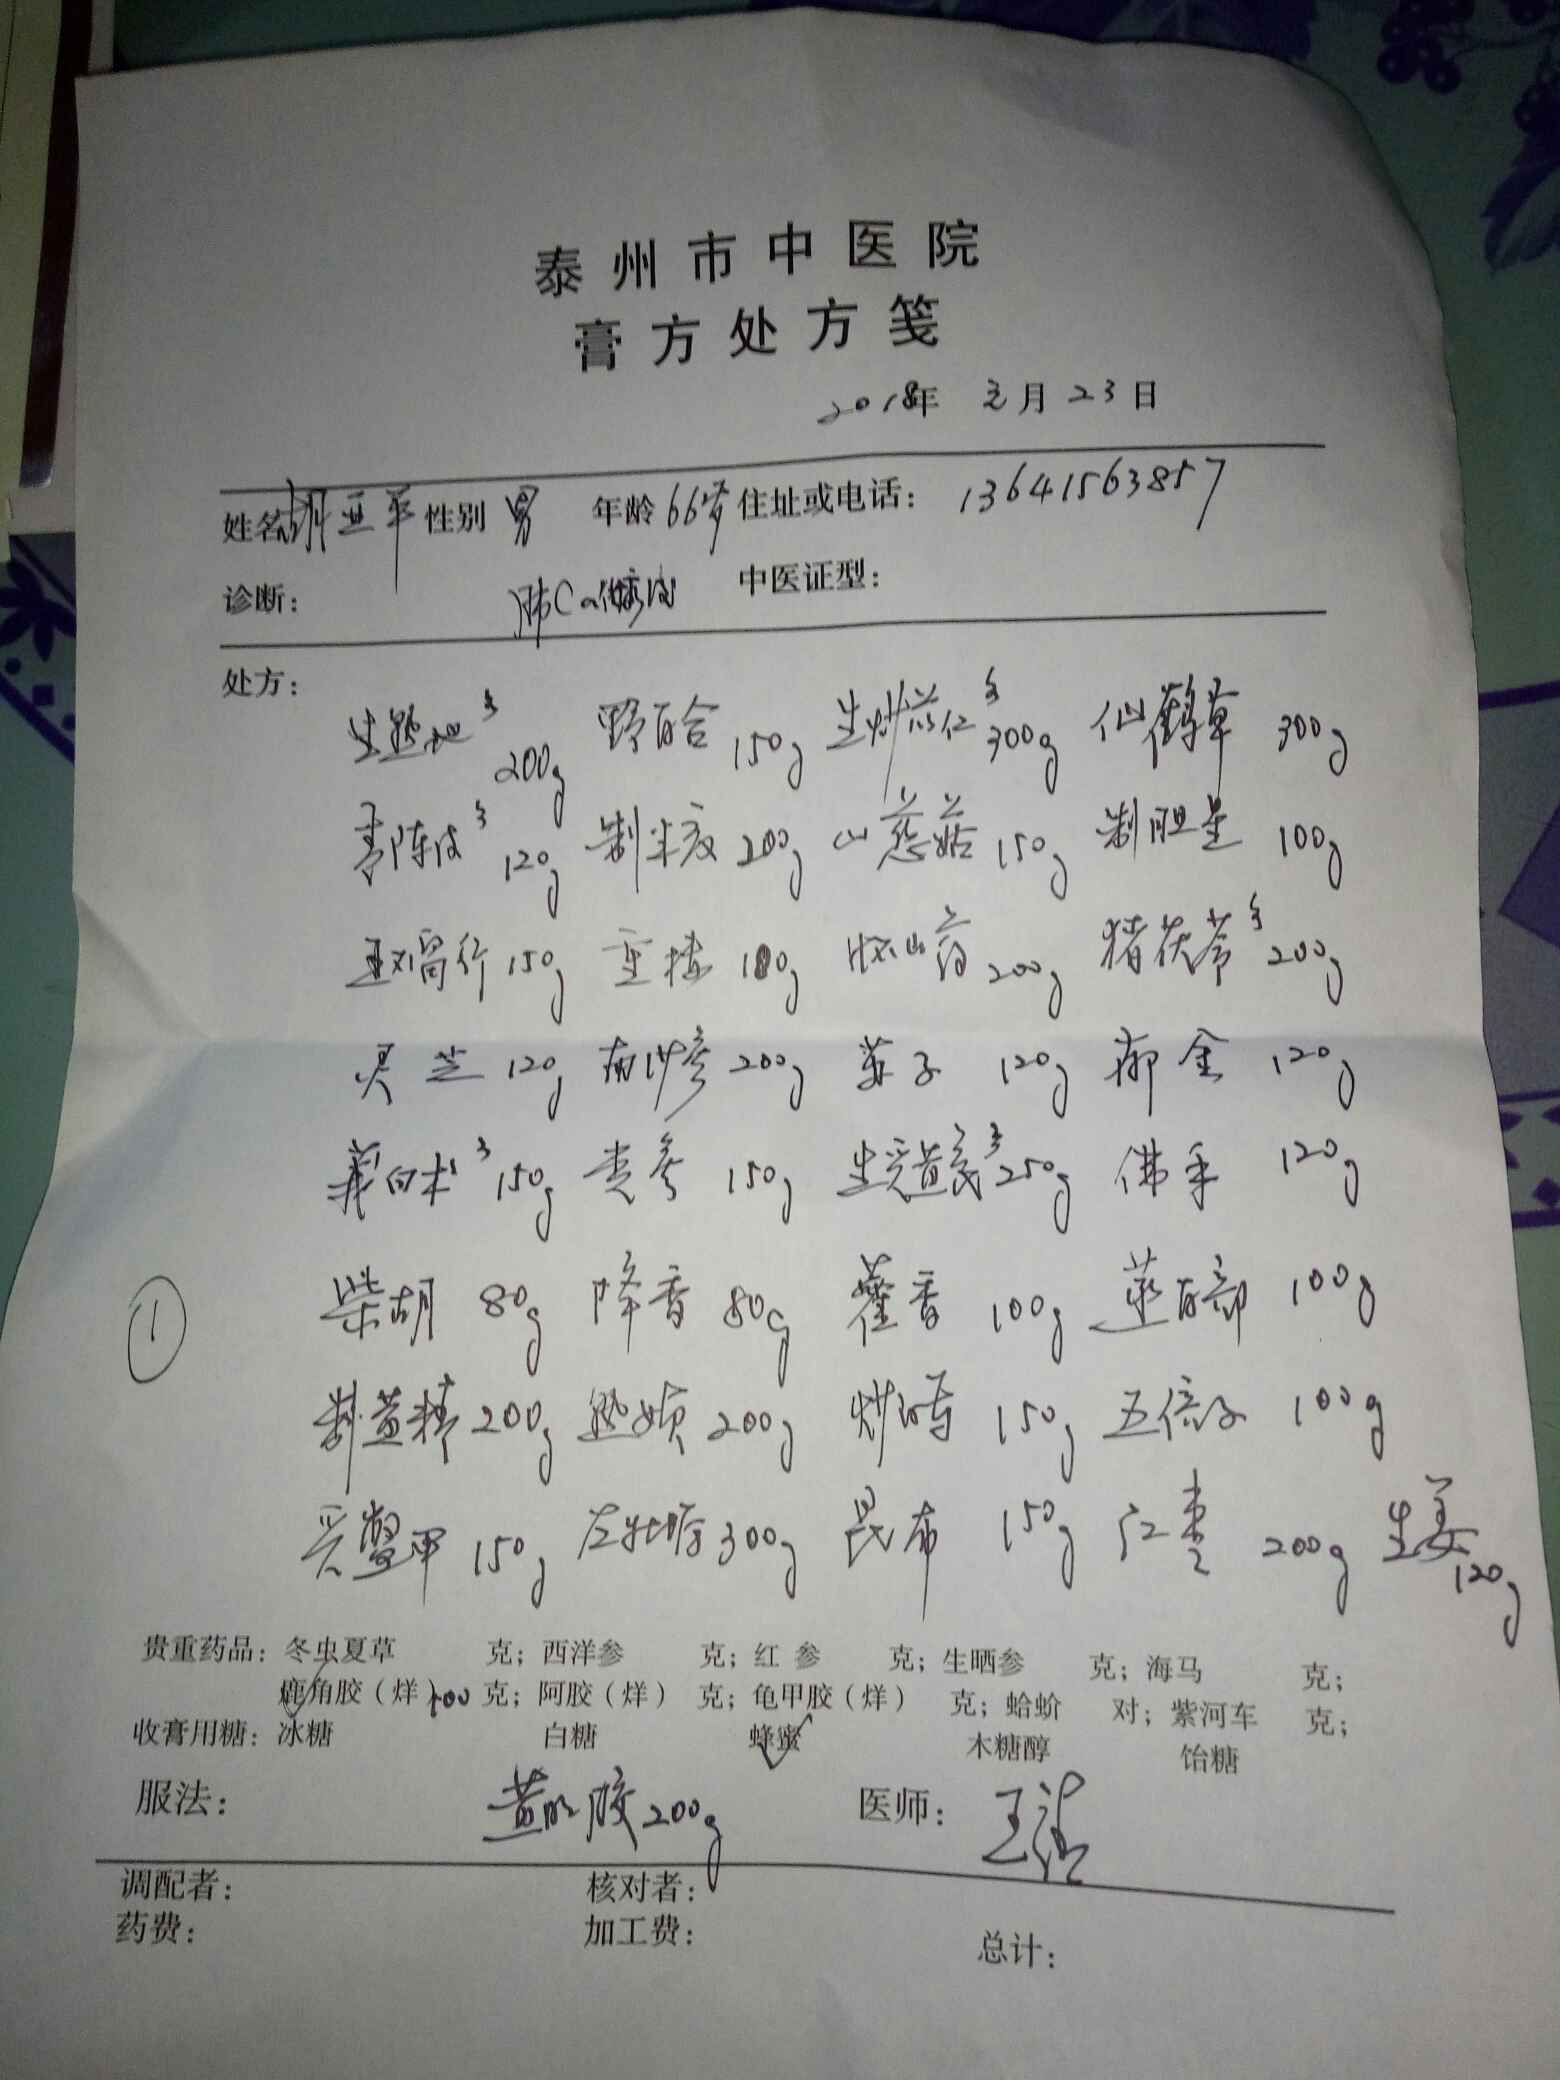 泰州市中医院
膏方处方笺
2018年 元月23日
姓名 胡亚平 性别 男 年龄 66岁 住址或电话: 13641563857
诊断: 肺Ca 中医证型:
处方:
生熟地各200g 野百合150g 生炒苡仁各300g 仙鹤草300g
青陈皮各120g 制半夏200g 山慈菇150g 制胆星100g
王不留行150g 重楼100g 怀山药200g 猪茯苓各200g
灵芝120g 南沙参200g 苏子120g 郁金120g
莪白术各150g 党参150g 生炙黄芪各250g 佛手120g
柴胡80g 降香80g 藿香100g 蒸百部100g
制黄精200g 熟女贞200g 炒 150g 五倍子100g
炙鳖甲150g 左牡蛎300g 昆布150g 红枣200g 生姜120g
①
贵重药品: 冬虫夏草 克; 西洋参 克; 红参 克; 生晒参 克; 海马 克;
鹿角胶(烊)100克; 阿胶(烊) 克; 龟甲胶(烊) 克; 蛤蚧 对; 紫河车 克;
收膏用糖: 冰糖 白糖 蜂蜜 木糖醇 饴糖
服法: 黄明胶200g 医师: 王
调配者: 核对者:
药费: 加工费: 总计: